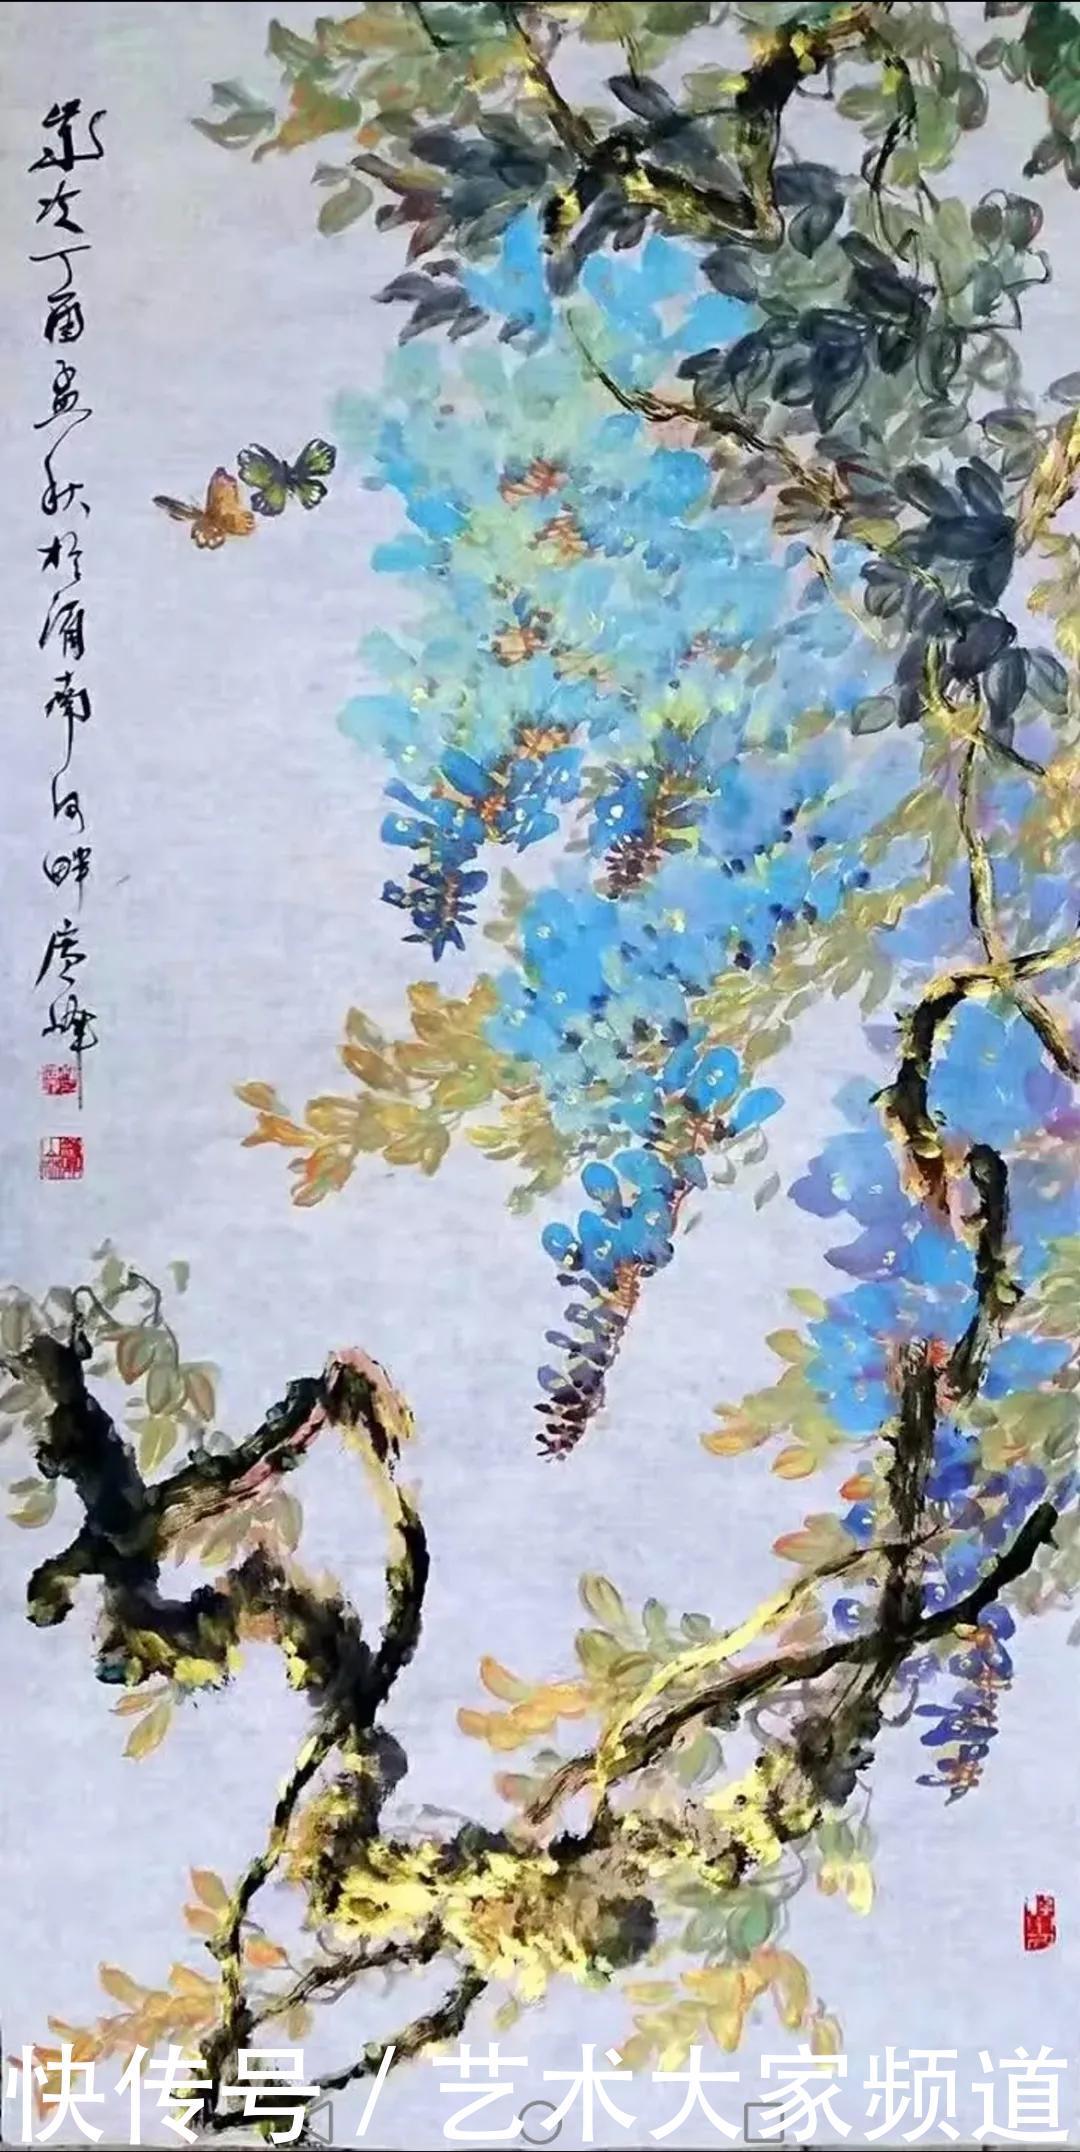 歲次丁酉孟秋於渭南河畔廣峰
快传号 / 艺术大家频道